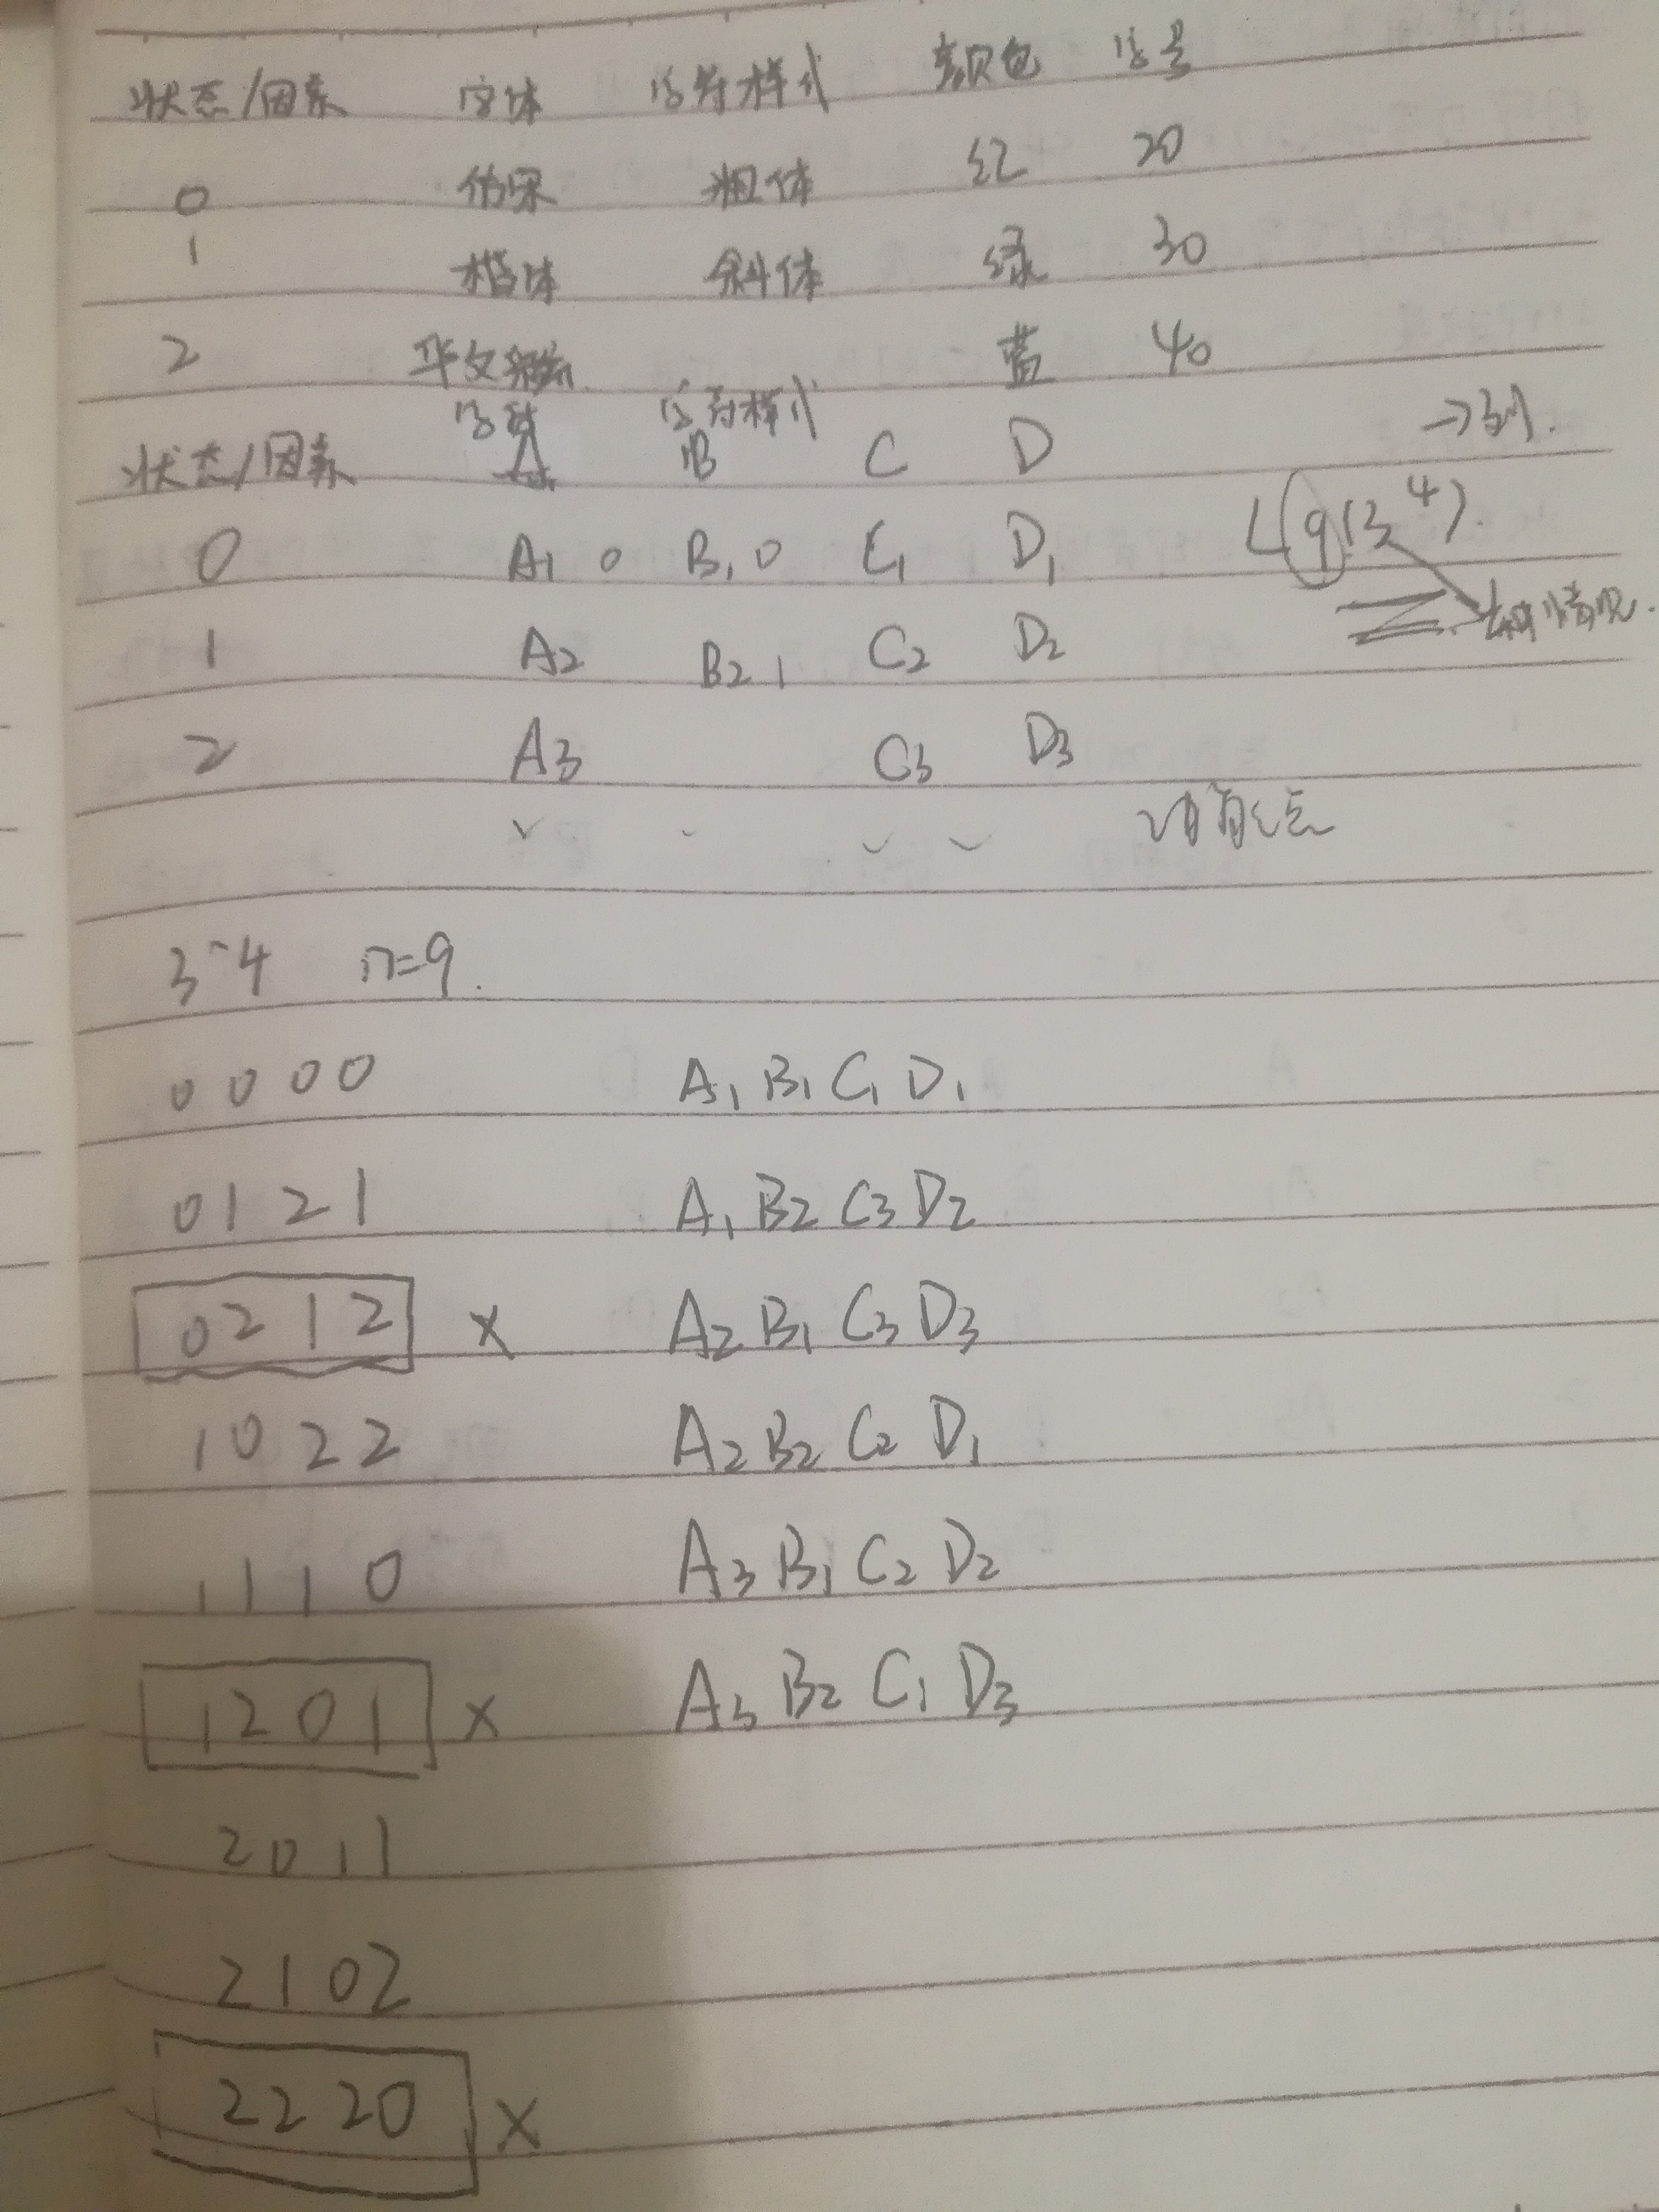 状态/因素 字体 字符样式 颜色 字号
0 仿宋 粗体 红 20
1 楷体 斜体 绿 30
2 华文 蓝 40
字体 字符样式
状态/因素 A B C D →列.
0 A1 0 B1 0 C1 D1 L9(3^4).
1 A2 B2 1 C2 D2 情况.
2 A3 C3 D3
3^4 n=9.
0 0 0 0 A1 B1 C1 D1
0 1 2 1 A1 B2 C3 D2
0 2 1 2 × A2 B1 C3 D3
1 0 2 2 A2 B2 C2 D1
1 1 1 0 A3 B1 C2 D2
1 2 0 1 × A3 B2 C1 D3
2 0 1 1
2 1 0 2
2 2 2 0 ×